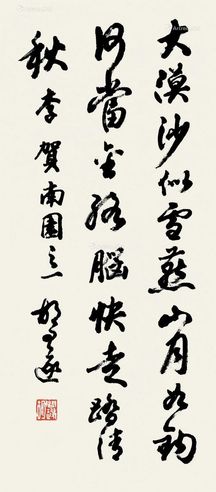 大漠沙似雪燕山月如钩
何當金络腦快走踏清
秋李賀南園之一